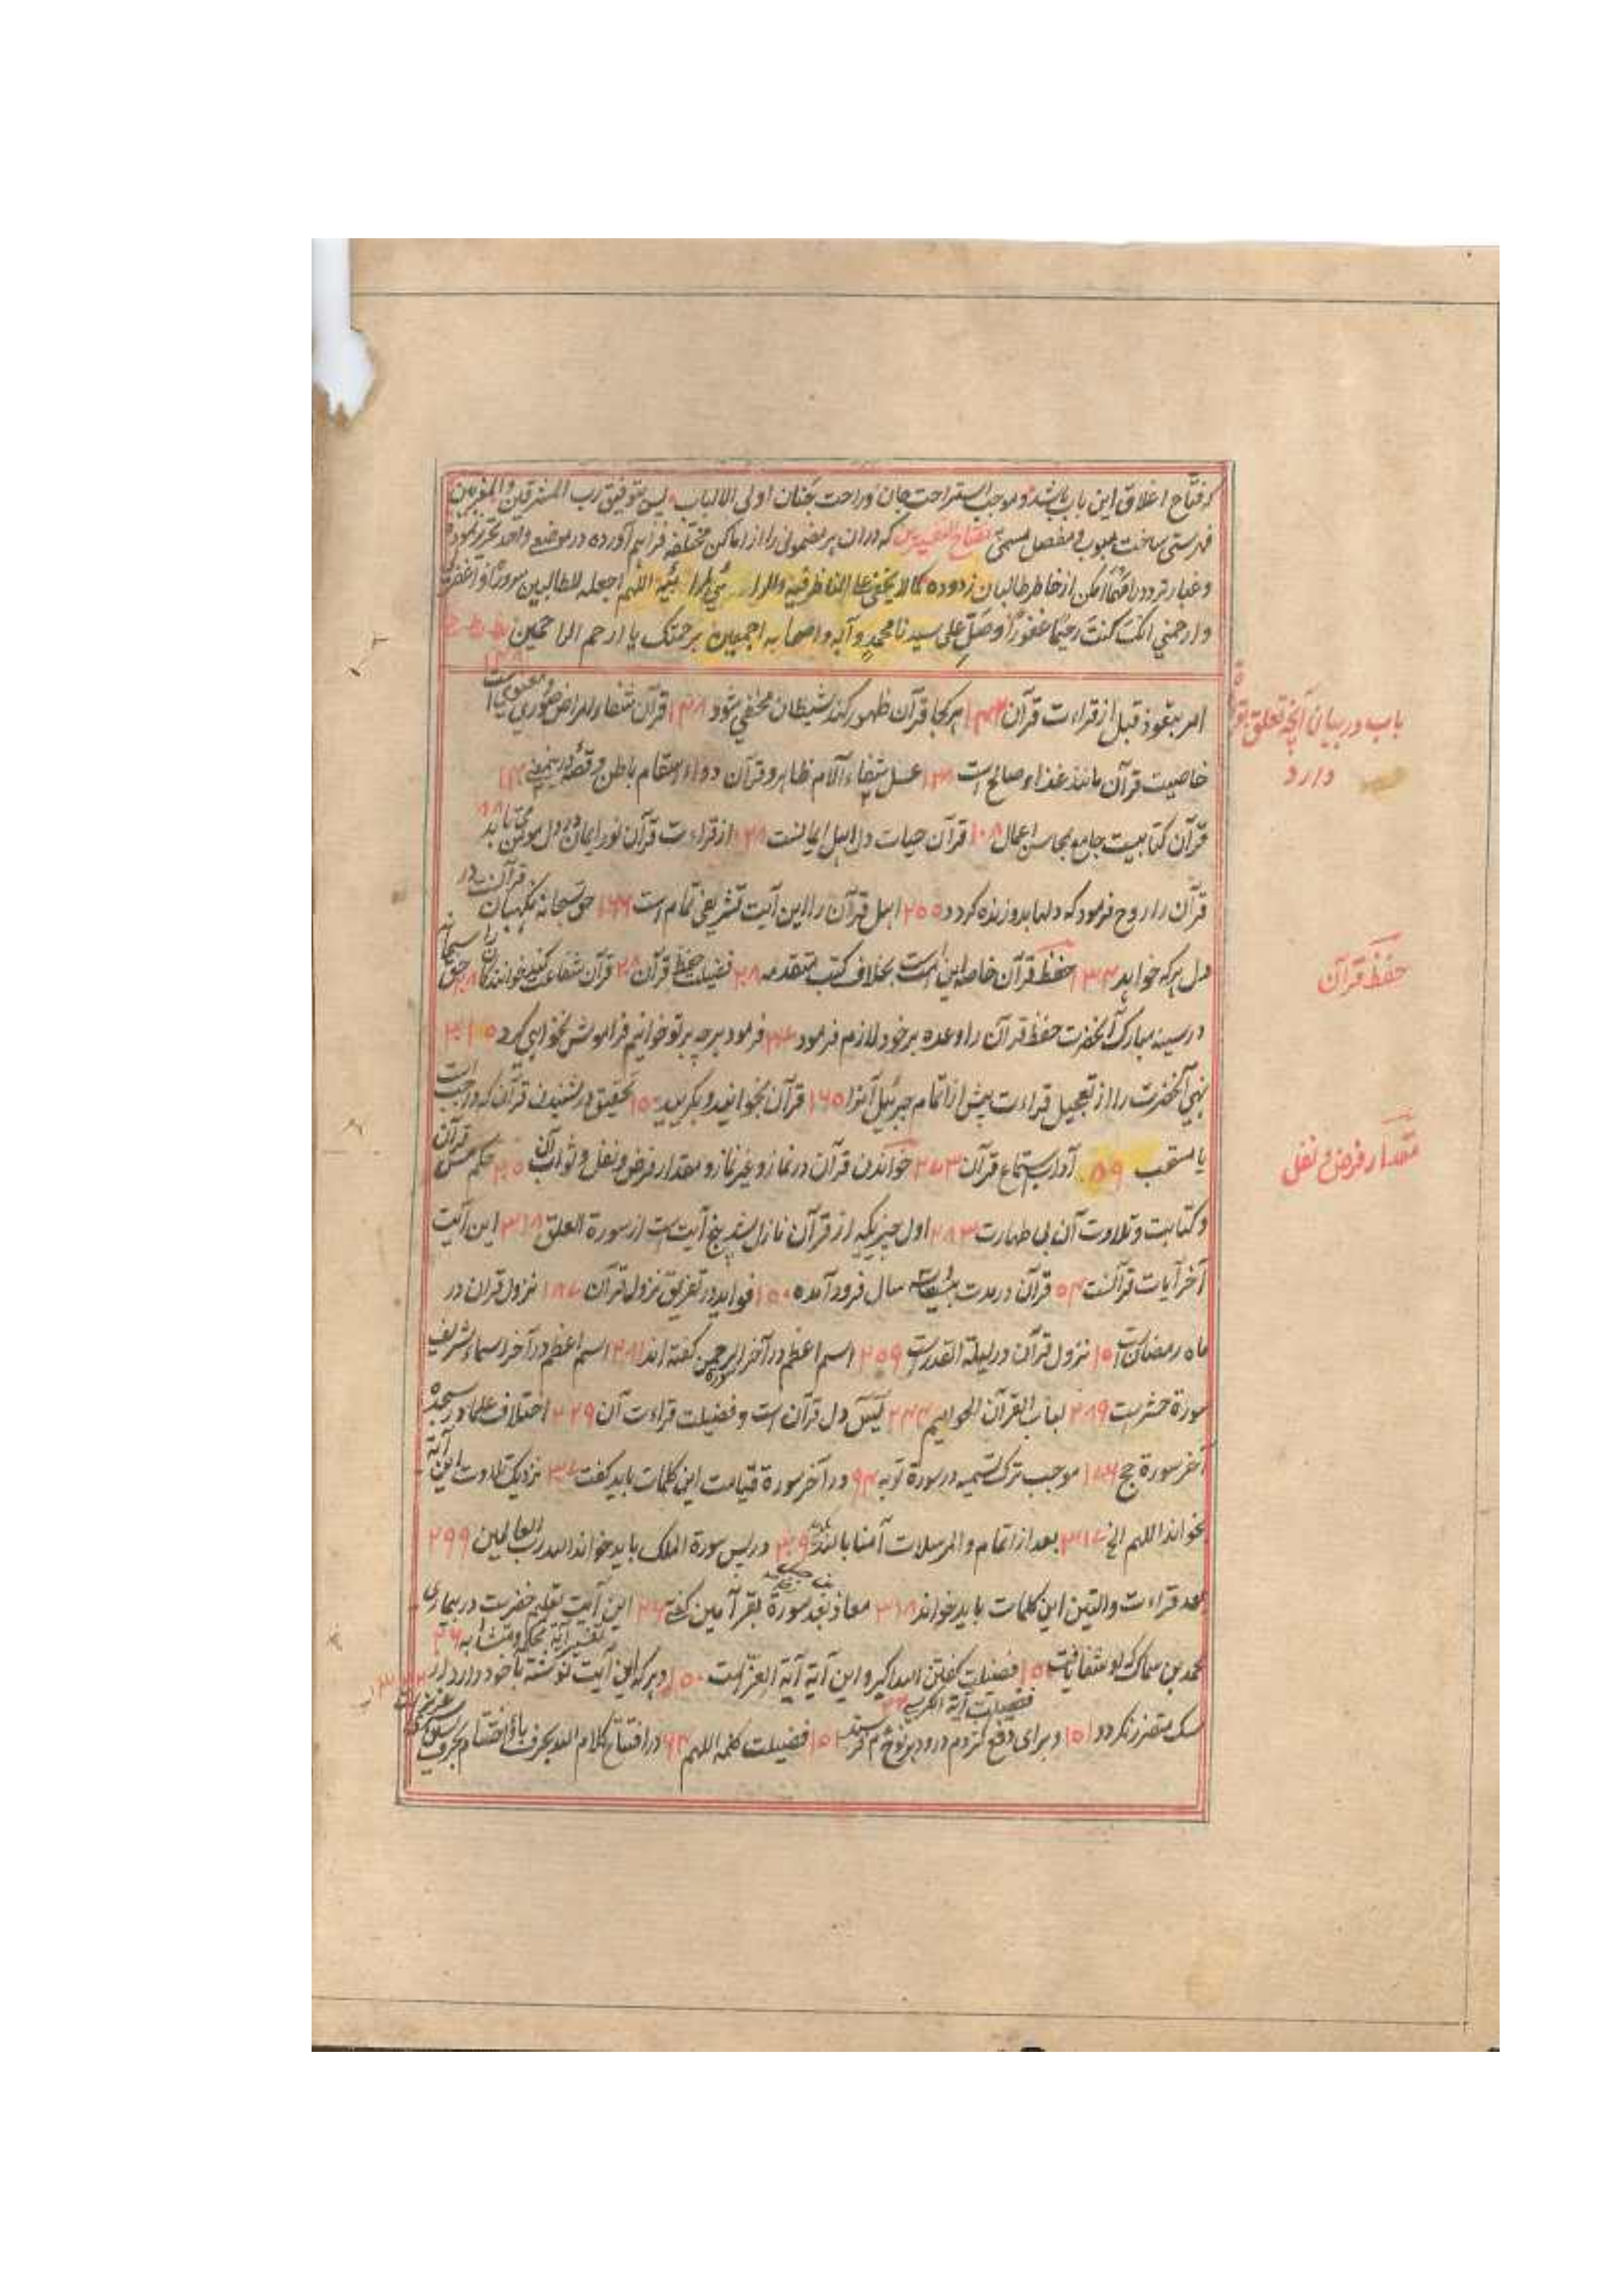 که فتاح اغلاق این باب باشد و موجب استراحت جان و راحت جنان اولی الالباب پس بتوفیق رب المشرقین والمغربین
فهرستی ساخت مبوب و مفصل مسمی که دران هر مضمونی را از اماکن مختلفه فراهم آورده در موضع واحد تحریر نموده
و غبار تردد از خاطر طالبان زدوده کما لا یخفی علی الناظر فیه اللهم اجعله للطالبین سرورا واغفر
وارحمنی انک کنت رحیما غفورا وصل علی سیدنا محمد وآله واصحابه اجمعین برحمتک یا ارحم الراحمین
باب در بیان آنچه تعلق
دارد
امر بتعوذ قبل از قراءت قرآن هر کجا قرآن ظهور کند شیطان مخفی شود ۱۳۸ قرآن شفاء امراض صوری و معنوی است
خاصیت قرآن مانند غذاء صالح است عسل شفاء آلام ظاهر و قرآن دواء اسقام باطن
قرآن کتابیست جامع محاسن اعمال ۱۰۸ قرآن حیات دل اهل ایمانست از قراءت قرآن نور ایمان در دل مومن می تابد
قرآن را روح فرمود که دلها بدو زنده گردد ۲۵۵ اهل قرآن را این آیت تشریفی تمام است ۱۶۶ حق سبحانه نگهبان قرآنست در
حفظ قرآن
دل هر که خواهد ۱۳۴ حفظ قرآن خاصه این امت است بخلاف کتب متقدمه ۲۰۸ فضیلت حفظ قرآن ۲۸ قرآن شفاعت کند خوانندگان را حق سبحانه
در سینه مبارک آنحضرت حفظ قرآن را وعده بر خود لازم فرمود فرمود هر چه بر تو خوانیم فراموش نخواهی کرد
نهی آنحضرت را از تعجیل قراءت پیش از اتمام جبرئیل آنرا ۱۶۵ قرآن بخوانید و بگریید ۱۵۰ تحقیق در شنیدن قرآن که واجب است
مقدار فرض و نفل
یا مستحب ۵۹ آداب استماع قرآن ۲۷۳ خواندن قرآن در نماز و غیر نماز و مقدار فرض و نفل و ثواب آن حکم مس قرآن
و کتابت و تلاوت آن بی طهارت ۲۸۳ اول چیزیکه از قرآن نازل شد پنج آیت است از سورة العلق ۳۱۸ این آیت
آخر آیات قرآنست ۵۴ قرآن در مدت سال فرود آمده ۱۵۰ فواید در تفریق نزول قرآن ۱۸۷ نزول قرآن در
ماه رمضانست ۱۵ نزول قرآن در لیلة القدرست ۲۵۹ اسم اعظم در آخر سوره الرحمن گفته اند ۲۸۱ اسم اعظم در آخر اسماء شریف
سورة حشرست ۲۸۹ لباب القرآن الحوامیم ۲۴۴ یس دل قرآن است و فضیلت قراءت آن ۲۲۹ اختلاف علما در سجدهٔ
آخر سورة حج ۱۷۶ موجب ترک تسمیه در سورة توبه ۹۴ در آخر سورة قیامت این کلمات باید گفت ۳۰۷ نزدیک تلاوت این آیة
بخواند اللهم الخ ۳۱۷ بعد از اتمام والمرسلات آمنا بالله ۳۰۹ در پس سورة الملک باید خواند الله رب العالمین ۲۹۹
بعد قراءت والتین این کلمات باید خواند ۳۱۸ معاذ بعد سورة بقر آمین گفتی ۴۶ این آیت تعلیم خضرست در بیماری
محمد بن سماک که بدو شفا یافت ۱۵۰ فضیلت گفتن الله اکبر و این آیة آیة العز است ۱۵۰ و هر که این آیت نوشته با خود دارد از تفسیر آیه محکم و متشابه ۴۶
سگ متضرر نگردد ۱۵۱ و برای دفع کژدم درود بر نوح ۱۵۱ فضیلت آیة الکرسی فضیلت کلمه اللهم ۶۳ در افتتاح کلام الله بحرف با و اختتام بحرف